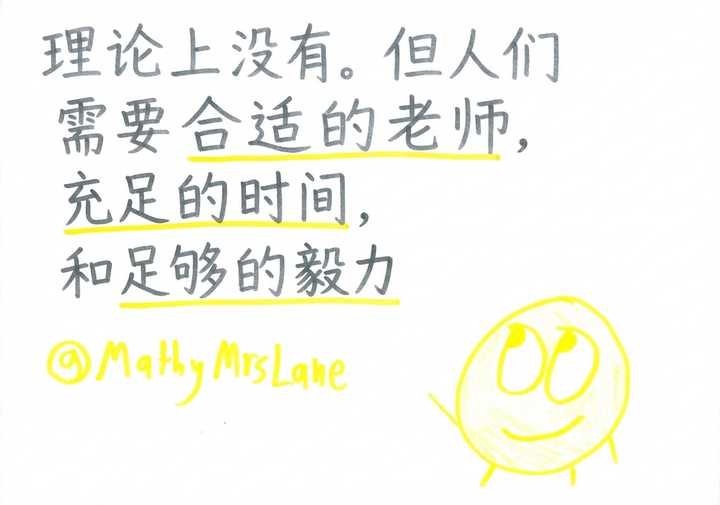 理论上没有。但人们
需要合适的老师,
充足的时间,
和足够的毅力
@MathyMrsLane